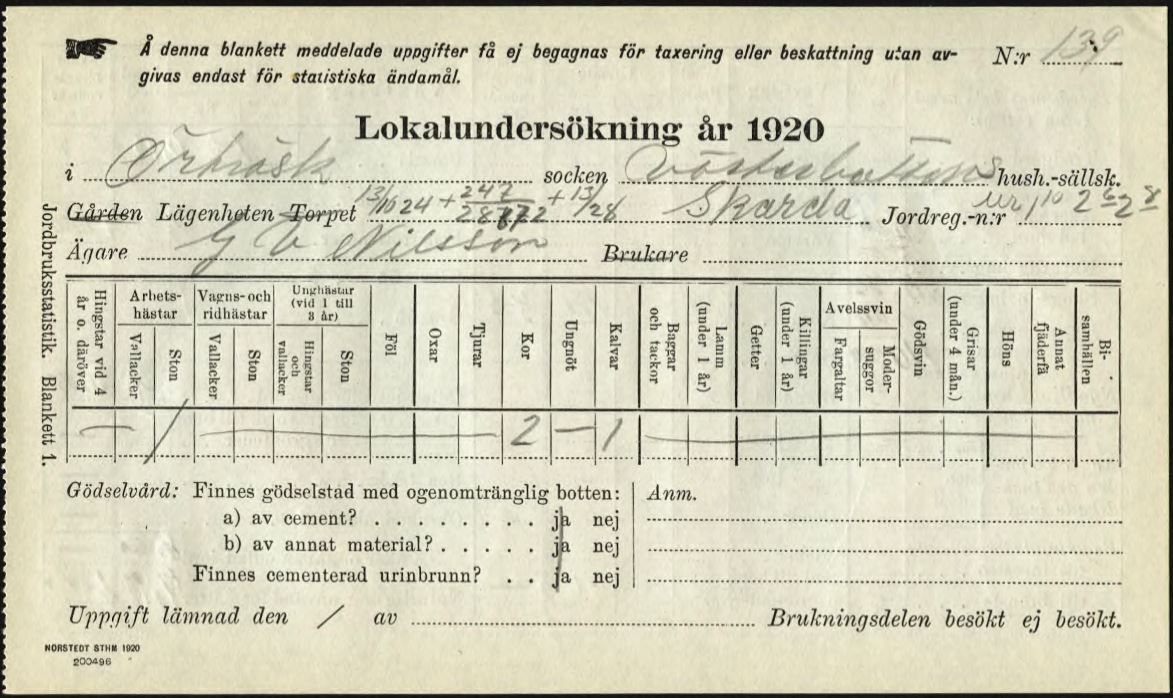 Å denna blankett meddelade uppgifter få ej begagnas för taxering eller beskattning utan av-
givas endast för statistiska ändamål.
N:r 139
Lokalundersökning år 1920
i Örträsk socken Västerbottens hush.-sällsk.
Gården Lägenheten Torpet Skarda Jordreg.-n:r
Ägare G V Nilsson Brukare
Jordbruksstatistik. Blankett 1.
Hingstar vid 4 år o. däröver
Arbetshästar
Vallacker
Ston
Vagns- och ridhästar
Vallacker
Ston
Unghästar (vid 1 till 3 år)
Hingstar och vallacker
Ston
Föl
Oxar
Tjurar
Kor
Ungnöt
Kalvar
Baggar och tackor
Lamm (under 1 år)
Getter
Killingar (under 1 år)
Avelssvin
Fargaltar
Moder-suggor
Gödsvin
Grisar (under 4 mån.)
Höns
Annat fjäderfä
Bi-samhällen
— / — 2 — 1 —
Gödselvård: Finnes gödselstad med ogenomtränglig botten:
a) av cement? . . . . . . . . ja nej
b) av annat material? . . . . . ja nej
Finnes cementerad urinbrunn? . . ja nej
Anm.
Uppgift lämnad den / av Brukningsdelen besökt ej besökt.
NORSTEDT STHM 1920
200496